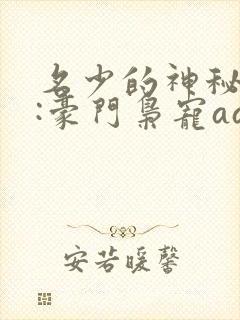 名少的神秘
:豪門梟寵ac
安若暖馨